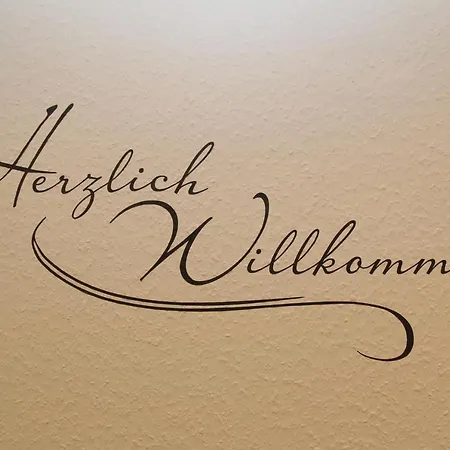 Herzlich
Willkomm